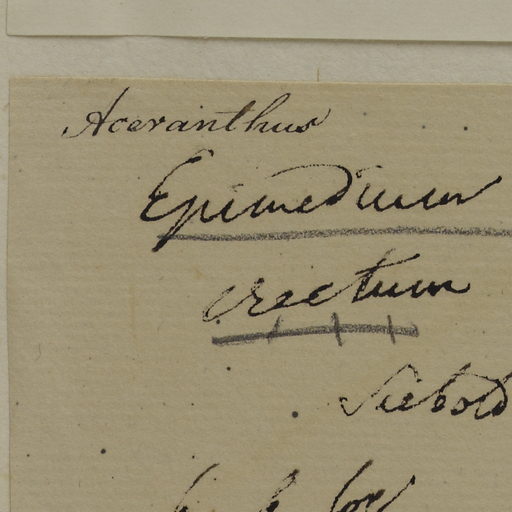 Aceranthus
Epimedium
erectum
Siebold